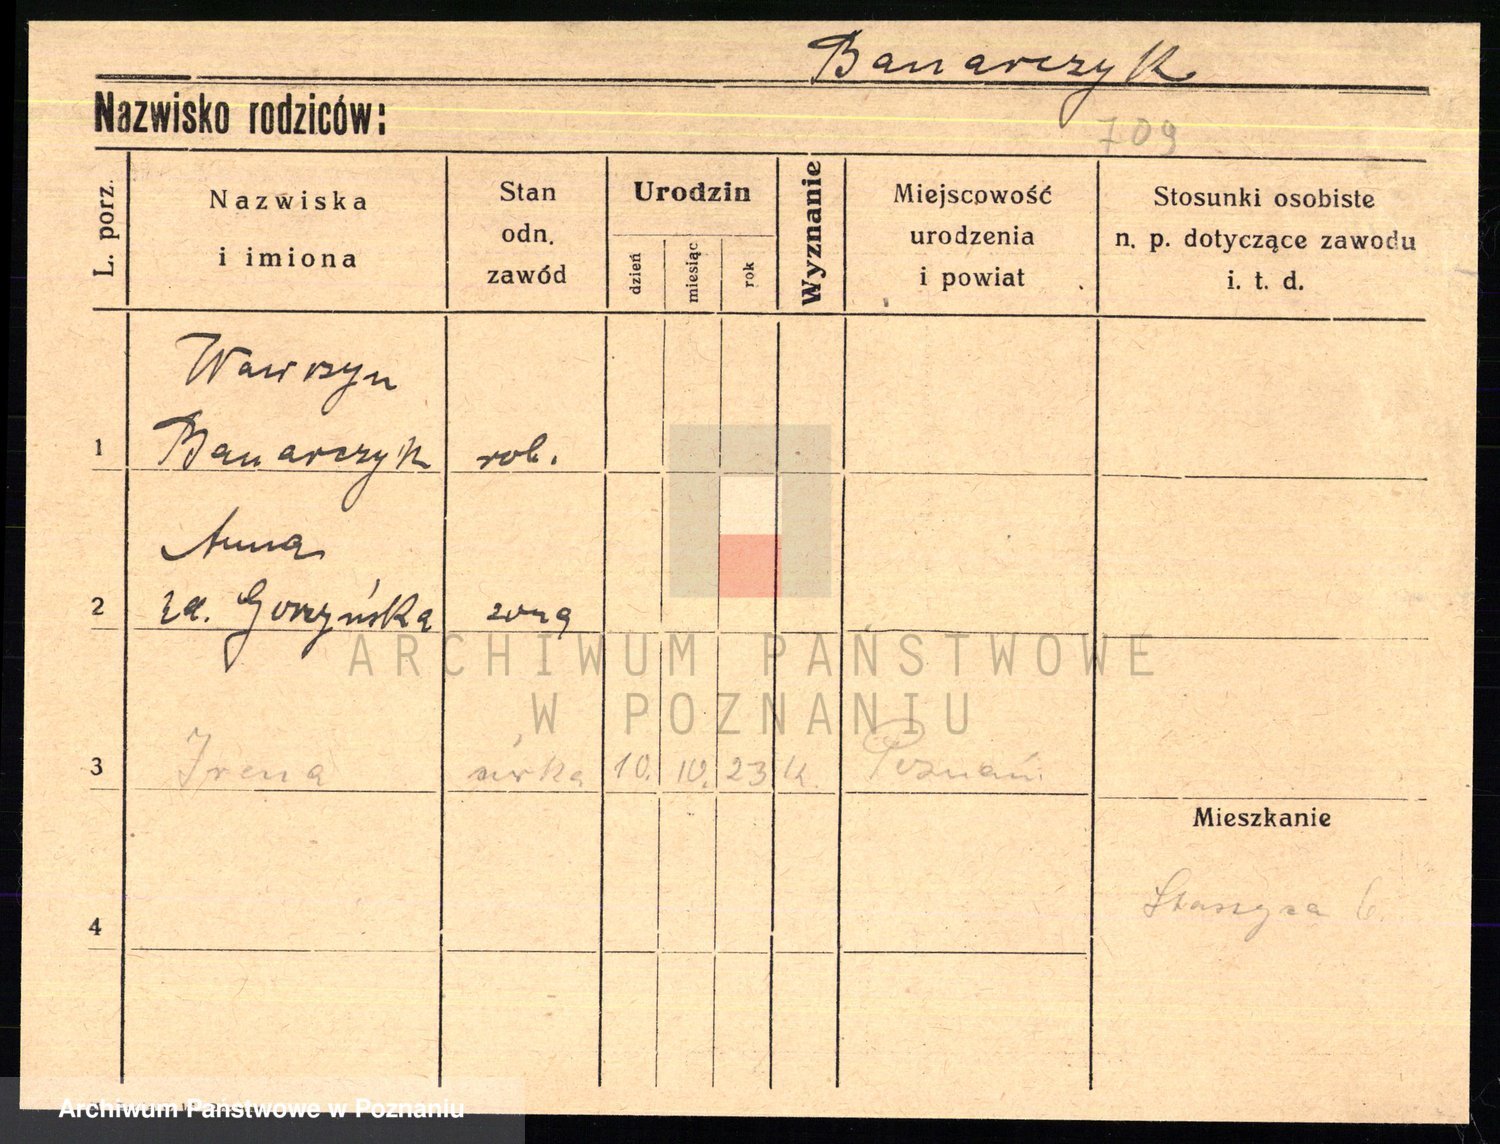 Banarczyk
Nazwisko rodziców:
709
L. porz.
Nazwiska
i imiona
Stan
odn.
zawód
Urodzin
dzień
miesiąc
rok
Wyznanie
Miejscowość
urodzenia
i powiat
Stosunki osobiste
n. p. dotyczące zawodu
i. t. d.
Wawrzyn
1 Banarczyk rob.
Anna
2 zd. Gorzyńska żona
ARCHIWUM PAŃSTWOWE
W POZNANIU
3 Irena córka 10. 10. 23 k. Poznań
Mieszkanie
Staszyca 6.
4
Archiwum Państwowe w Poznaniu